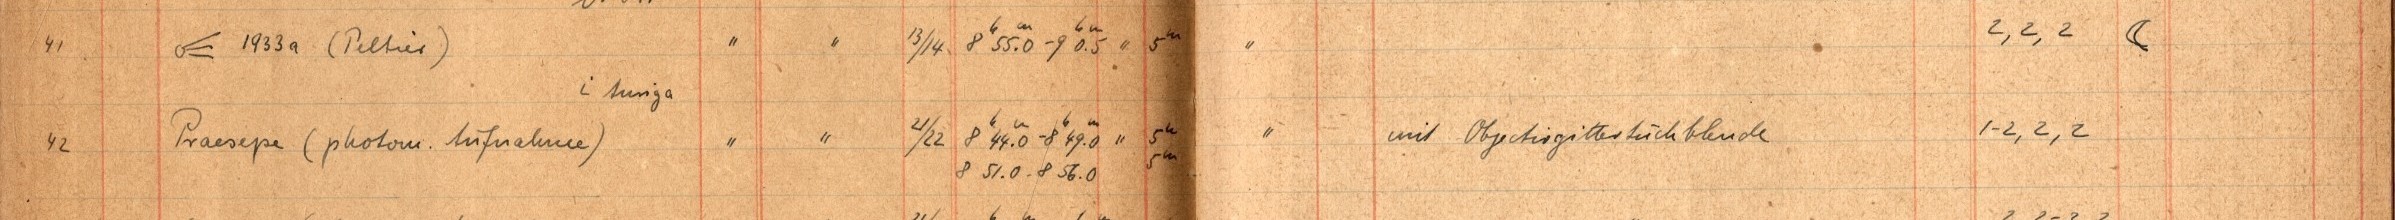 41 ☄ 1933a (Peltier) " " 13/14 8ʰ 55.0ᵐ - 9ʰ 0.5ᵐ " 5ᵐ " 2, 2, 2 ☾
i Auriga
42 Praesepe (photom. Aufnahme) " " 21/22 8ʰ 44.0ᵐ - 8ʰ 49.0ᵐ " 5ᵐ " mit Objectivgitter 1-2, 2, 2
8 51.0 - 8 56.0 5ᵐ